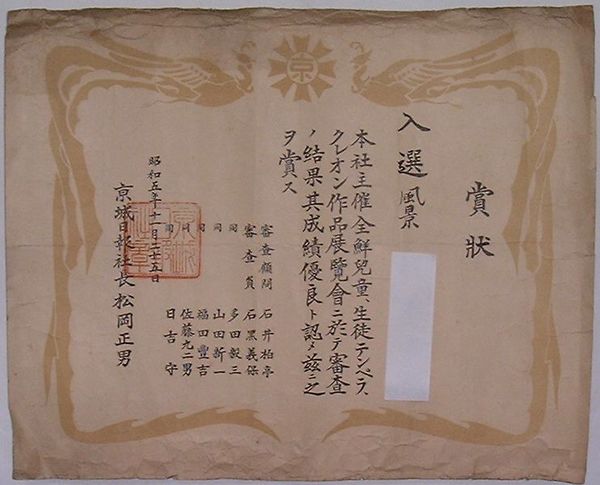 京
賞狀
入選 風景
本社主催全鮮兒童、生徒テンペラ、
クレオン作品展覽會ニ於テ審査
ノ結果其成績優良ト認メ茲ニ之
ヲ賞ス
審査顧問 石井柏亭
審査員 石黑義保
同 多田毅三
同 山田新一
同 福田豐吉
同 佐藤九二男
同 日吉守
昭和五年十一月二十五日
京城日報社長 松岡正男